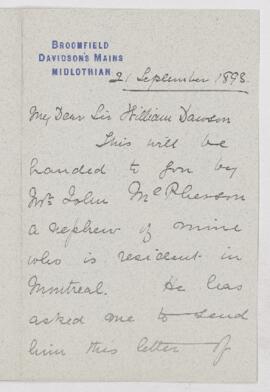 BROOMFIELD
DAVIDSON'S MAINS
MIDLOTHIAN
21 September 1893.
My Dear Sir William Dawson
This will be
handed to you by
Mr. John McPherson
a nephew of mine
who is resident in
Montreal. He has
asked me to send
him this letter of